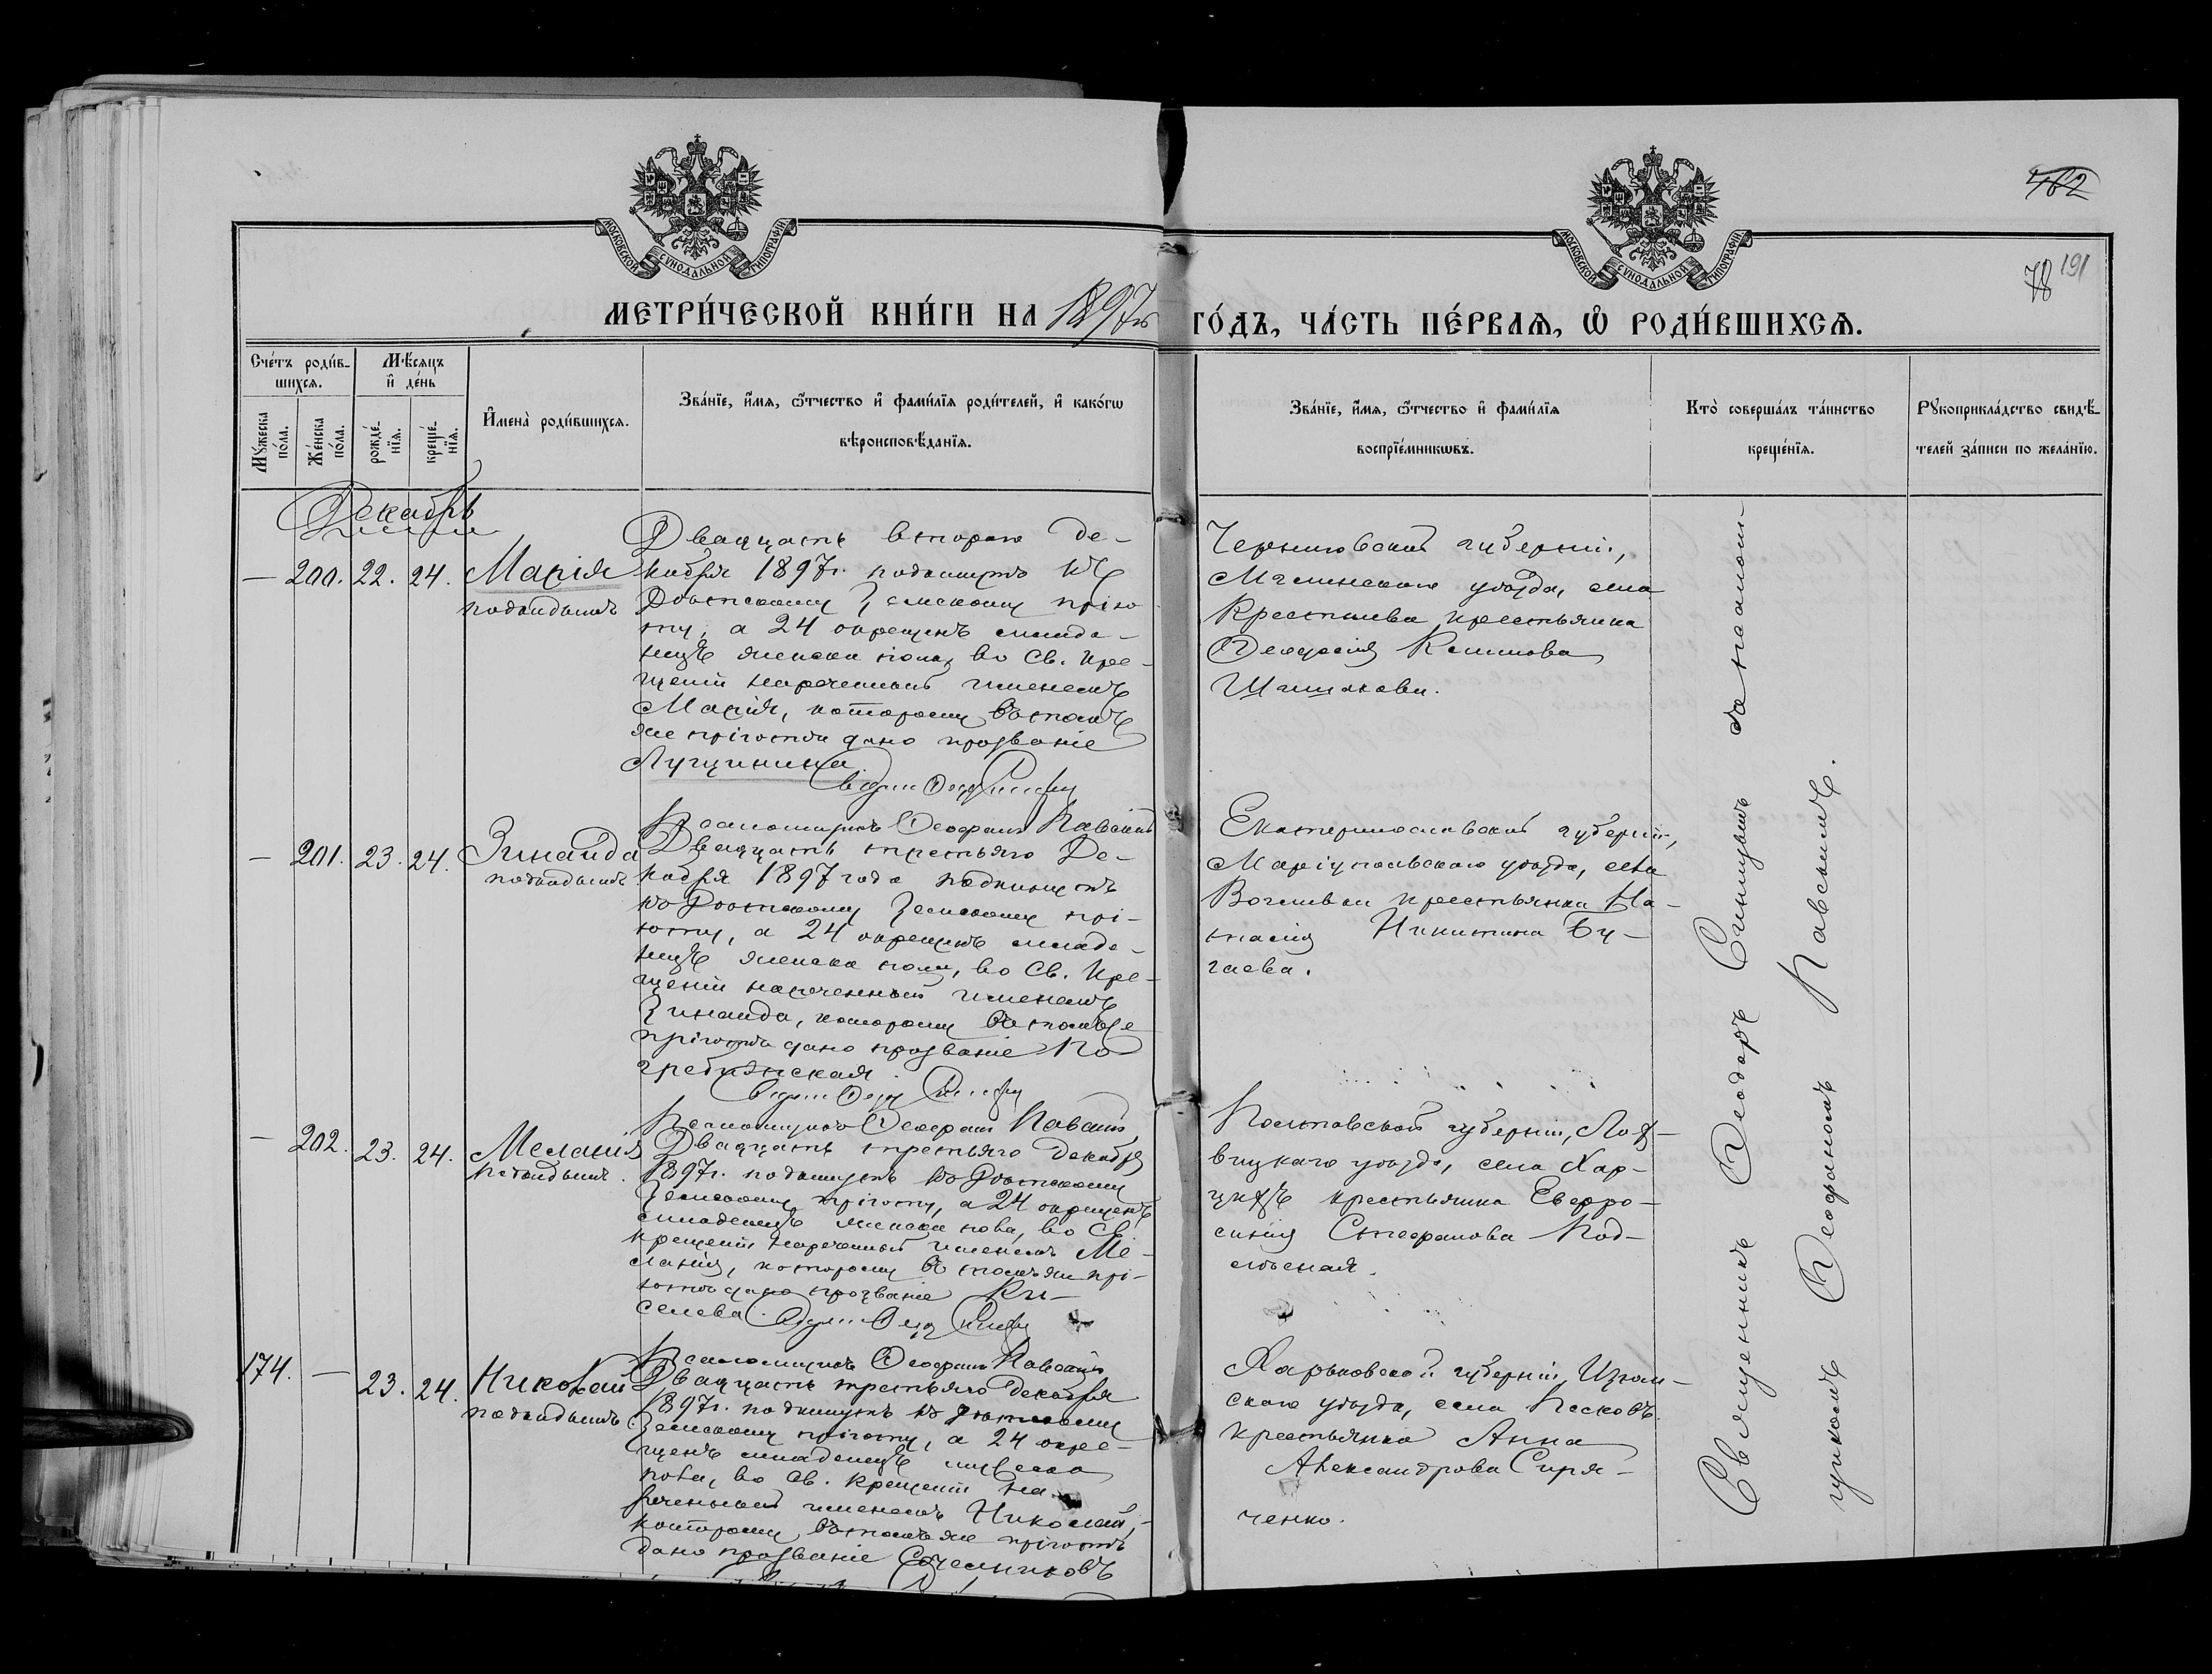 МОСКОВСКОЙ СѴНОДАЛЬНОЙ ТИПОГРАФІИ
МОСКОВСКОЙ СѴНОДАЛЬНОЙ ТИПОГРАФІИ
462
78 191
МЕТРИ́ЧЕСКОЙ КНИ́ГИ НА 1897й ГО́ДЪ, ЧА́СТЬ ПЕ́РВАЯ, Ѡ РОДИ́ВШИХСЯ.
Сче́тъ роди́в-
шихся.
Мꙋ́жеска по́ла.
Же́нска по́ла.
Мѣ́сяцъ
и҆ де́нь
рожде́нїя.
креще́нїя.
И҆мена̀ роди́вшихся.
Зва́нїе, и҆́мя, ѻ҆́тчество и҆ фами́лїя роди́телей, и҆ како́гѡ
вѣроисповѣ́данїя.
Зва́нїе, и҆́мя, ѻ҆́тчество и҆ фами́лїя
воспрїе́мникѡвъ.
Кто̀ соверша́лъ та́инство
креще́нїя.
Рꙋкоприкла́дство свидѣ́-
телей за́писи по жела́нїю.
Декабрь
— 200. 22. 24. Марія
подкидышъ
Двадцать второго Де-
кабря 1897г. подкинутъ къ
Ростскому Земскому прію
ту, а 24 окрещенъ младе-
нецъ женска пола, во Св. Кре-
щеніи нареченный именемъ
Марія, которому въ томъ
же пріютѣ дано прозваніе
Лущинина.
Псаломщикъ Ѳеофанъ Павскій
Черниговской губерніи,
Мглинскаго уѣзда, села
крестьянка
Ѳеодосія Климова
Шишкова.
— 201. 23. 24. Зинаида
подкидышъ
Двадцать третьяго Де-
кабря 1897 года подкинутъ
къ Ростскому Земскому прі-
юту, а 24 окрещенъ младе-
нецъ женска пола, во Св. Кре-
щеніи нареченный именемъ
Зинаида, которому въ томъ же
пріютѣ дано прозваніе По
гребинская.
Псаломщикъ Ѳеофанъ Павскій
Екатеринославской губерніи,
Маріупольскаго уѣзда, села
крестьянка На-
талія Никитина Бу-
гаева.
— 202. 23. 24. Меланія
подкидышъ.
Двадцать третьяго Декабря
1897г. подкинутъ къ Ростскому
Земскому пріюту, а 24 окрещенъ
младенецъ женска пола, во Св.
крещеніи нареченный именемъ Ме-
ланія, которому въ томъ же прі-
ютѣ дано прозваніе Ки-
селева.
Псаломщикъ Ѳеофанъ Павскій
Полтавской губерніи, Лох-
вицкаго уѣзда, села Хар-
крестьянка Евфро-
синія Стефанова Под-
лѣсная.
174. — 23. 24. Николай
подкидышъ
Двадцать третьяго Декабря
1897г. подкинутъ къ Ростскому
Земскому пріюту, а 24 окре-
щенъ младенецъ мужеска
пола, во Св. крещеніи на-
реченный именемъ Николай,
которому въ томъ же пріютѣ
дано прозваніе
Харьковской губерніи, Изюм-
скаго уѣзда, села Песковъ
крестьянка Анна
Александрова Сиря-
ченко.
Священникъ Ѳеодоръ за псалом-
щикомъ Ѳеофаномъ Павскимъ.